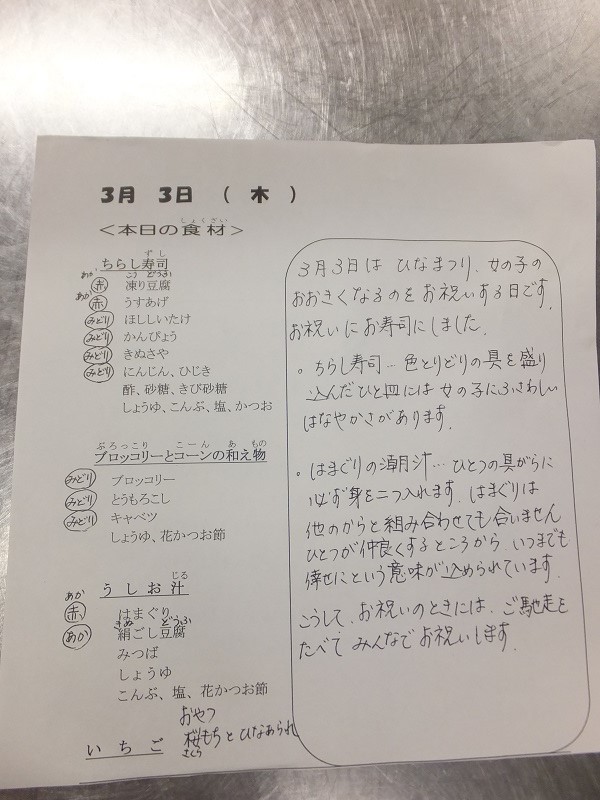 3月 3日 ( 木 )
しょくざい
<本日の食材>
ずし
ちらし寿司
あか こう どうふ
赤 凍り豆腐
あか
赤 うすあげ
みどり ほししいたけ
みどり かんぴょう
みどり きぬさや
みどり にんじん、ひじき
酢、砂糖、きび砂糖
しょうゆ、こんぶ、塩、かつお
ぶろっこり こーん あ もの
ブロッコリーとコーンの和え物
みどり ブロッコリー
みどり とうもろこし
みどり キャベツ
しょうゆ、花かつお節
じる
うしお汁
あか
赤 はまぐり
きぬ どうふ
あか 絹ごし豆腐
みつば
しょうゆ
こんぶ、塩、花かつお節
おやつ
いちご 桜もちとひなあられ
さくら
3月3日は ひなまつり、女の子の
おおきくなるのを お祝いする日です。
お祝いに お寿司にしました。
。ちらし寿司… 色とりどりの具を盛り
込んだひと皿には 女の子にふさわしい
はなやかさがあります。
。はまぐりの潮汁… ひとつの具がらに
必ず身を二つ入れます。はまぐりは
他のからと組み合わせても合いません
ひとつが仲良くするところから、いつまでも
倖せにという意味が込められています。
こうして、お祝いのときには、ご馳走を
たべて みんなで お祝いします。